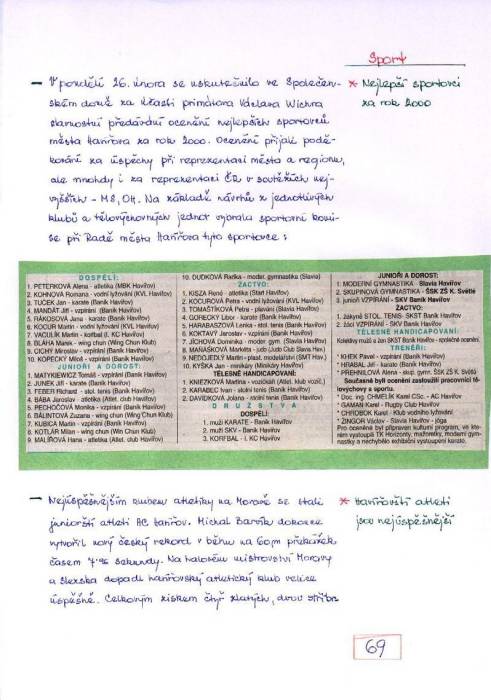 Sport
- V pondělí 26. února se uskutečnilo ve Společen-
ském domě za účasti primátora Václava Wichra
slavnostní předávání ocenění nejlepších sportovců
města Havířova za rok 2000. Ocenění přijali podě-
kování za úspěchy při reprezentaci města a regionu,
ale mnohdy i za reprezentaci ČR v soutěžích nej-
vyšších - MS, OH. Na základě návrhů z jednotlivých
klubů a tělovýchovných jednot vybrala sportovní komi-
se při Radě města Havířova tyto sportovce:
* Nejlepší sportovci
za rok 2000
DOSPĚLÍ:
1. PETERKOVÁ Alena - atletika (MBK Havířov)
2. KOHNOVÁ Romana - vodní lyžování (KVL Havířov)
3. TUČEK Jan - karate (Baník Havířov)
4. MANDÁT Jiří - vzpírání (Baník Havířov)
5. RÁKOSOVÁ Jana - karate (Baník Havířov)
6. KOCUR Martin - vodní lyžování (KVL Havířov)
7. VACULÍK Martin - korfbal (I. KC Havířov)
8. BLAHA Marek - wing chun (Wing Chun Klub)
9. CICHÝ Miroslav - vzpírání (Baník Havířov)
10. KOPECKÝ Miloš - vzpírání (Baník Havířov)
JUNIOŘI A DOROST:
1. MATYKIEWICZ Tomáš - vzpírání (Baník Havířov)
2. JUNEK Jiří - karate (Baník Havířov)
3. FEBER Richard - stol. tenis (Baník Havířov)
4. BÁBA Jaroslav - atletika (Atlet. club Havířov)
5. PECHOČOVÁ Monika - vzpírání (Baník Havířov)
6. BÁLINTOVÁ Zuzana - wing chun (Wing Chun Klub)
7. KUBICA Martin - vzpírání (Baník Havířov)
8. KOTLÁR Milan - wing chun (Win Chun Klub)
9. MALÍŘOVÁ Hana - atletika (Atlet. club Havířov)
10. DUDKOVÁ Radka - moder. gymnastika (Slavia)
ŽACTVO:
1. KISZA René - atletika (Start Havířov)
2. KOCUROVÁ Petra - vodní lyžování (KVL Havířov)
3. TOMAŠTÍKOVÁ Petra - plavání (Slavia Havířov)
4. GORECKÝ Libor - karate (Baník Havířov)
5. HARABASZOVÁ Lenka - stol. tenis (Baník Havířov)
6. KOKTAVÝ Jaroslav - vzpírání (Baník Havířov)
7. JÍCHOVÁ Dominika - moder. gym. (Slavia Havířov)
8. MAŇÁSKOVÁ Markéta - judo (Judo Club Slavia Hav.)
9. NEDOJEDLÝ Martin - plast. modelářství (SMT Hav.)
10. KYŠKA Jan - minikáry (Minikáry Havířov)
TĚLESNĚ HANDICAPOVANÍ:
1. KNIEZKOVÁ Martina - vozíčkáři (Atlet. klub vozíč.)
2. KARABEC Ivan - stolní tenis (Baník Havířov)
3. DAVIDKOVÁ Jolana - stolní tenis (Baník Havířov)
DRUŽSTVA
DOSPĚLÍ:
1. muži KARATE - Baník Havířov
2. muži SKV - Baník Havířov
3. KORFBAL - I. KC Havířov
JUNIOŘI A DOROST:
1. MODERNÍ GYMNASTIKA - Slavia Havířov
2. SKUPINOVÁ GYMNASTIKA - ŠSK ZŠ K. Světlé
3. junioři VZPÍRÁNÍ - SKV Baník Havířov
ŽACTVO:
1. žákyně STOL. TENIS - SKST Baník Havířov
2. žáci VZPÍRÁNÍ - SKV Baník Havířov
TĚLESNĚ HANDICAPOVANÍ:
TRENÉŘI:
* KHEK Pavel - vzpírání (Baník Havířov)
* HRABAL Jiří - karate (Baník Havířov)
Současně byli oceněni zasloužilí pracovníci tě-
lovýchovy a sportu.
* Doc. ing. CHMELÍK Karel CSc. - AC Havířov
* GAMAN Karel - Rugby Club Havířov
* CHROBOK Karel - Klub vodního lyžování
* ŽINGOR Václav - Slavia Havířov - jóga
Pro oceněné byl připraven kulturní program, ve kte-
rém vystoupili TK Horizonty, mažoretky, moderní gym-
nastky a nechybělo exhibiční vystoupení karate.
- Nejúspěšnějším klubem atletiky na Moravě se stali
juniorští atleti AC Havířov. Michal Barvík dokonce
vytvořil nový český rekord v běhu na 60m překážek
časem sekundy. Na halovém mistrovství Moravy
a Slezska dopadl havířovský atletický klub velice
úspěšně. Celkovým ziskem čtyř zlatých, dvou stříbr
* Havířovští atleti
jsou nejúspěšnější
69